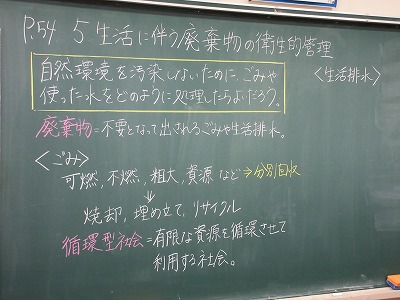 P.54 5 生活に伴う廃棄物の衛生的管理
自然環境を汚染しないために、ごみや
使った水をどのように処理したらよいだろう。
〈生活排水〉
廃棄物=不要となって出されるごみや生活排水。
〈ごみ〉
可燃、不燃、粗大、資源など⇒分別回収
↓
焼却、埋め立て、リサイクル
循環型社会=有限な資源を循環させて
利用する社会。